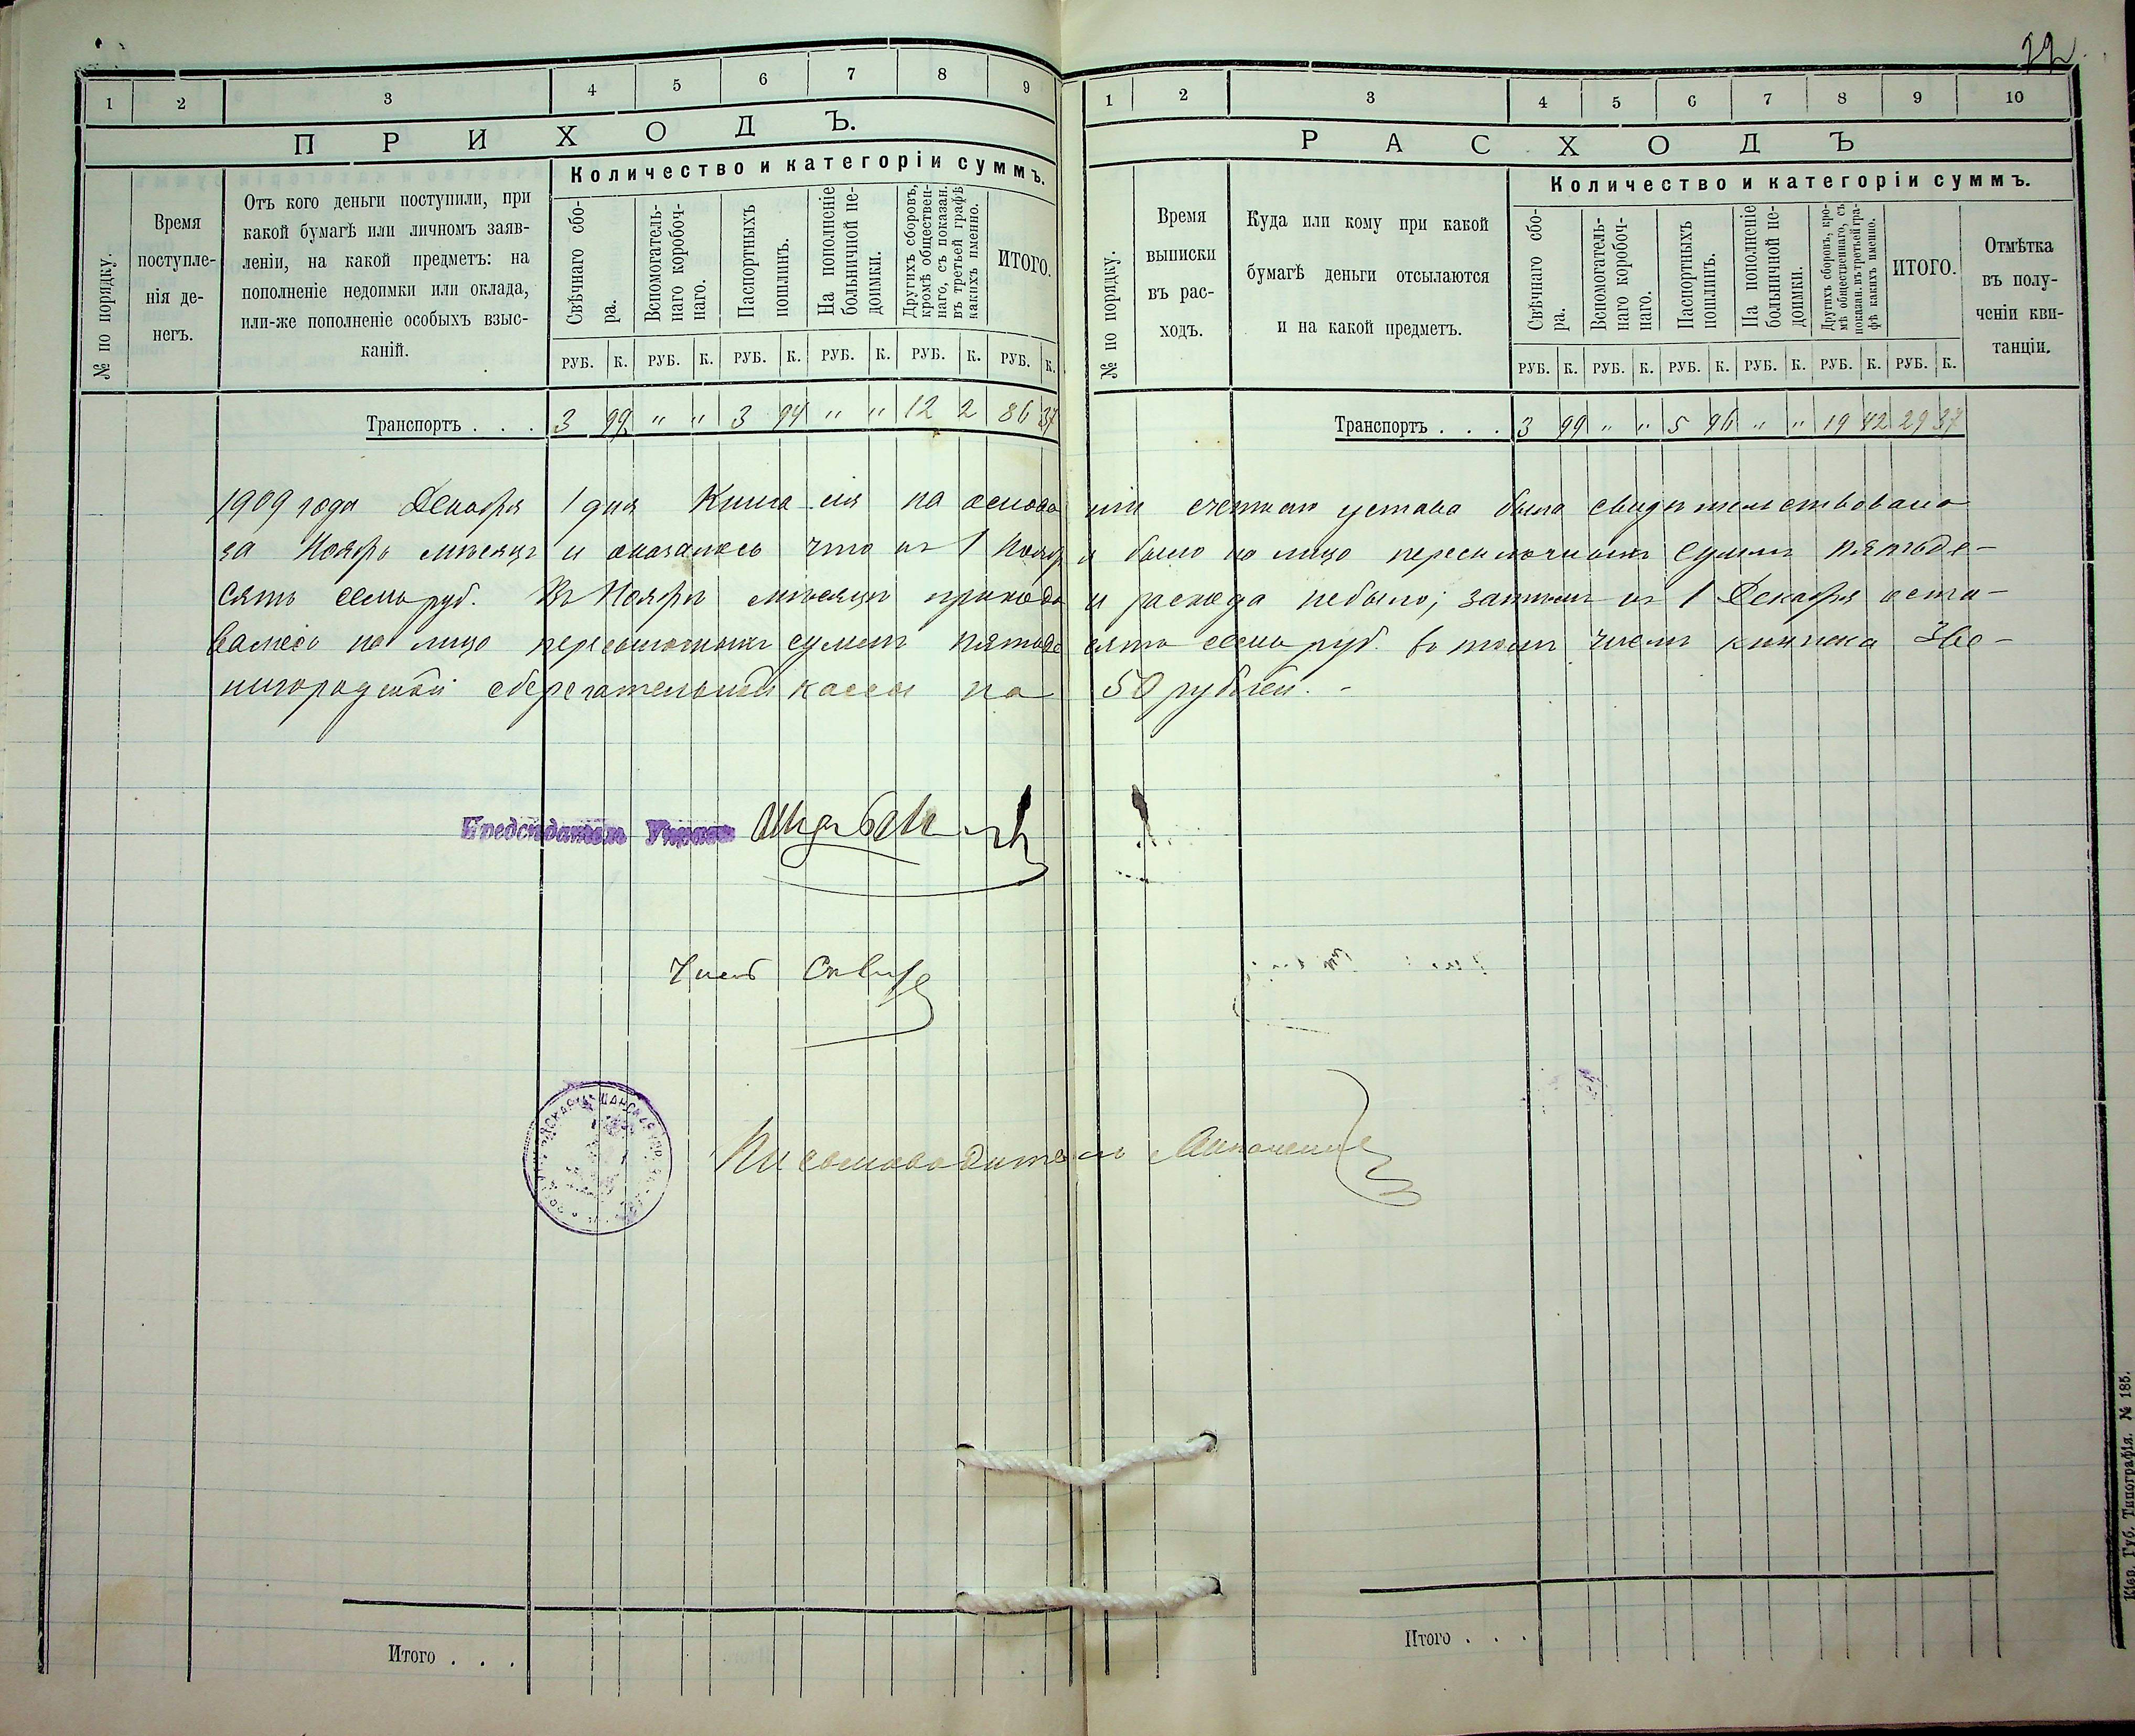 22
1 2 3 4 5 6 7 8 9
ПРИХОДЪ.
Количество и категоріи суммъ.
№ по порядку.
Время
поступле-
нія де-
негъ.
Отъ кого деньги поступили, при
какой бумагѣ или личномъ заяв-
леніи, на какой предметъ: на
пополненіе недоимки или оклада,
или-же пополненіе особыхъ взыс-
каній.
Свѣчнаго сбо-
ра.
Вспомогатель-
наго коробоч-
наго.
Паспортныхъ
пошлинъ.
На пополненіе
больничной не-
доимки.
Другихъ сборовъ,
кромѣ обществен-
наго, съ показан.
въ третьей графѣ
какихъ именно.
ИТОГО.
РУБ. К. РУБ. К. РУБ. К. РУБ. К. РУБ. К. РУБ. К.
Транспортъ . . . 3 99 " " 3 94 " " 12 2 86 37
1 2 3 4 5 6 7 8 9 10
РАСХОДЪ
Количество и категоріи суммъ.
№ по порядку.
Время
выписки
въ рас-
ходъ.
Куда или кому при какой
бумагѣ деньги отсылаются
и на какой предметъ.
Свѣчнаго сбо-
ра.
Вспомогатель-
наго коробоч-
наго.
Паспортныхъ
пошлинъ.
На пополненіе
больничной не-
доимки.
Другихъ сборовъ, кро-
мѣ общественнаго, съ
показан. въ третьей гра-
фѣ какихъ именно.
ИТОГО.
Отмѣтка
въ полу-
ченіи кви-
танціи.
РУБ. К. РУБ. К. РУБ. К. РУБ. К. РУБ. К. РУБ. К.
Транспортъ . . . 3 99 " " 5 96 " " 19 42 29 37
1909 года Декабря 1 дня Книга сія на основа ніи счетнаго устава была свидѣтельствована
за Ноябрь мѣсяцъ и оказалось что къ 1 Ноябр я было на лицо пересылочныхъ суммъ пятьде-
сятъ семь руб. Въ Ноябрѣ мѣсяцѣ прихода и расхода небыло; затѣмъ къ 1 Декабря оста-
валось на лицо пересылочныхъ суммъ пятьде сятъ семь руб. въ томъ числѣ книжка Зве-
нигородской сберегательной кассы на 50 рублей. -
Предсѣдатель Управы
Членъ
Письмоводитель
Итого . . .
Итого . . .
Кіев. Губ. Типографія. № 185.